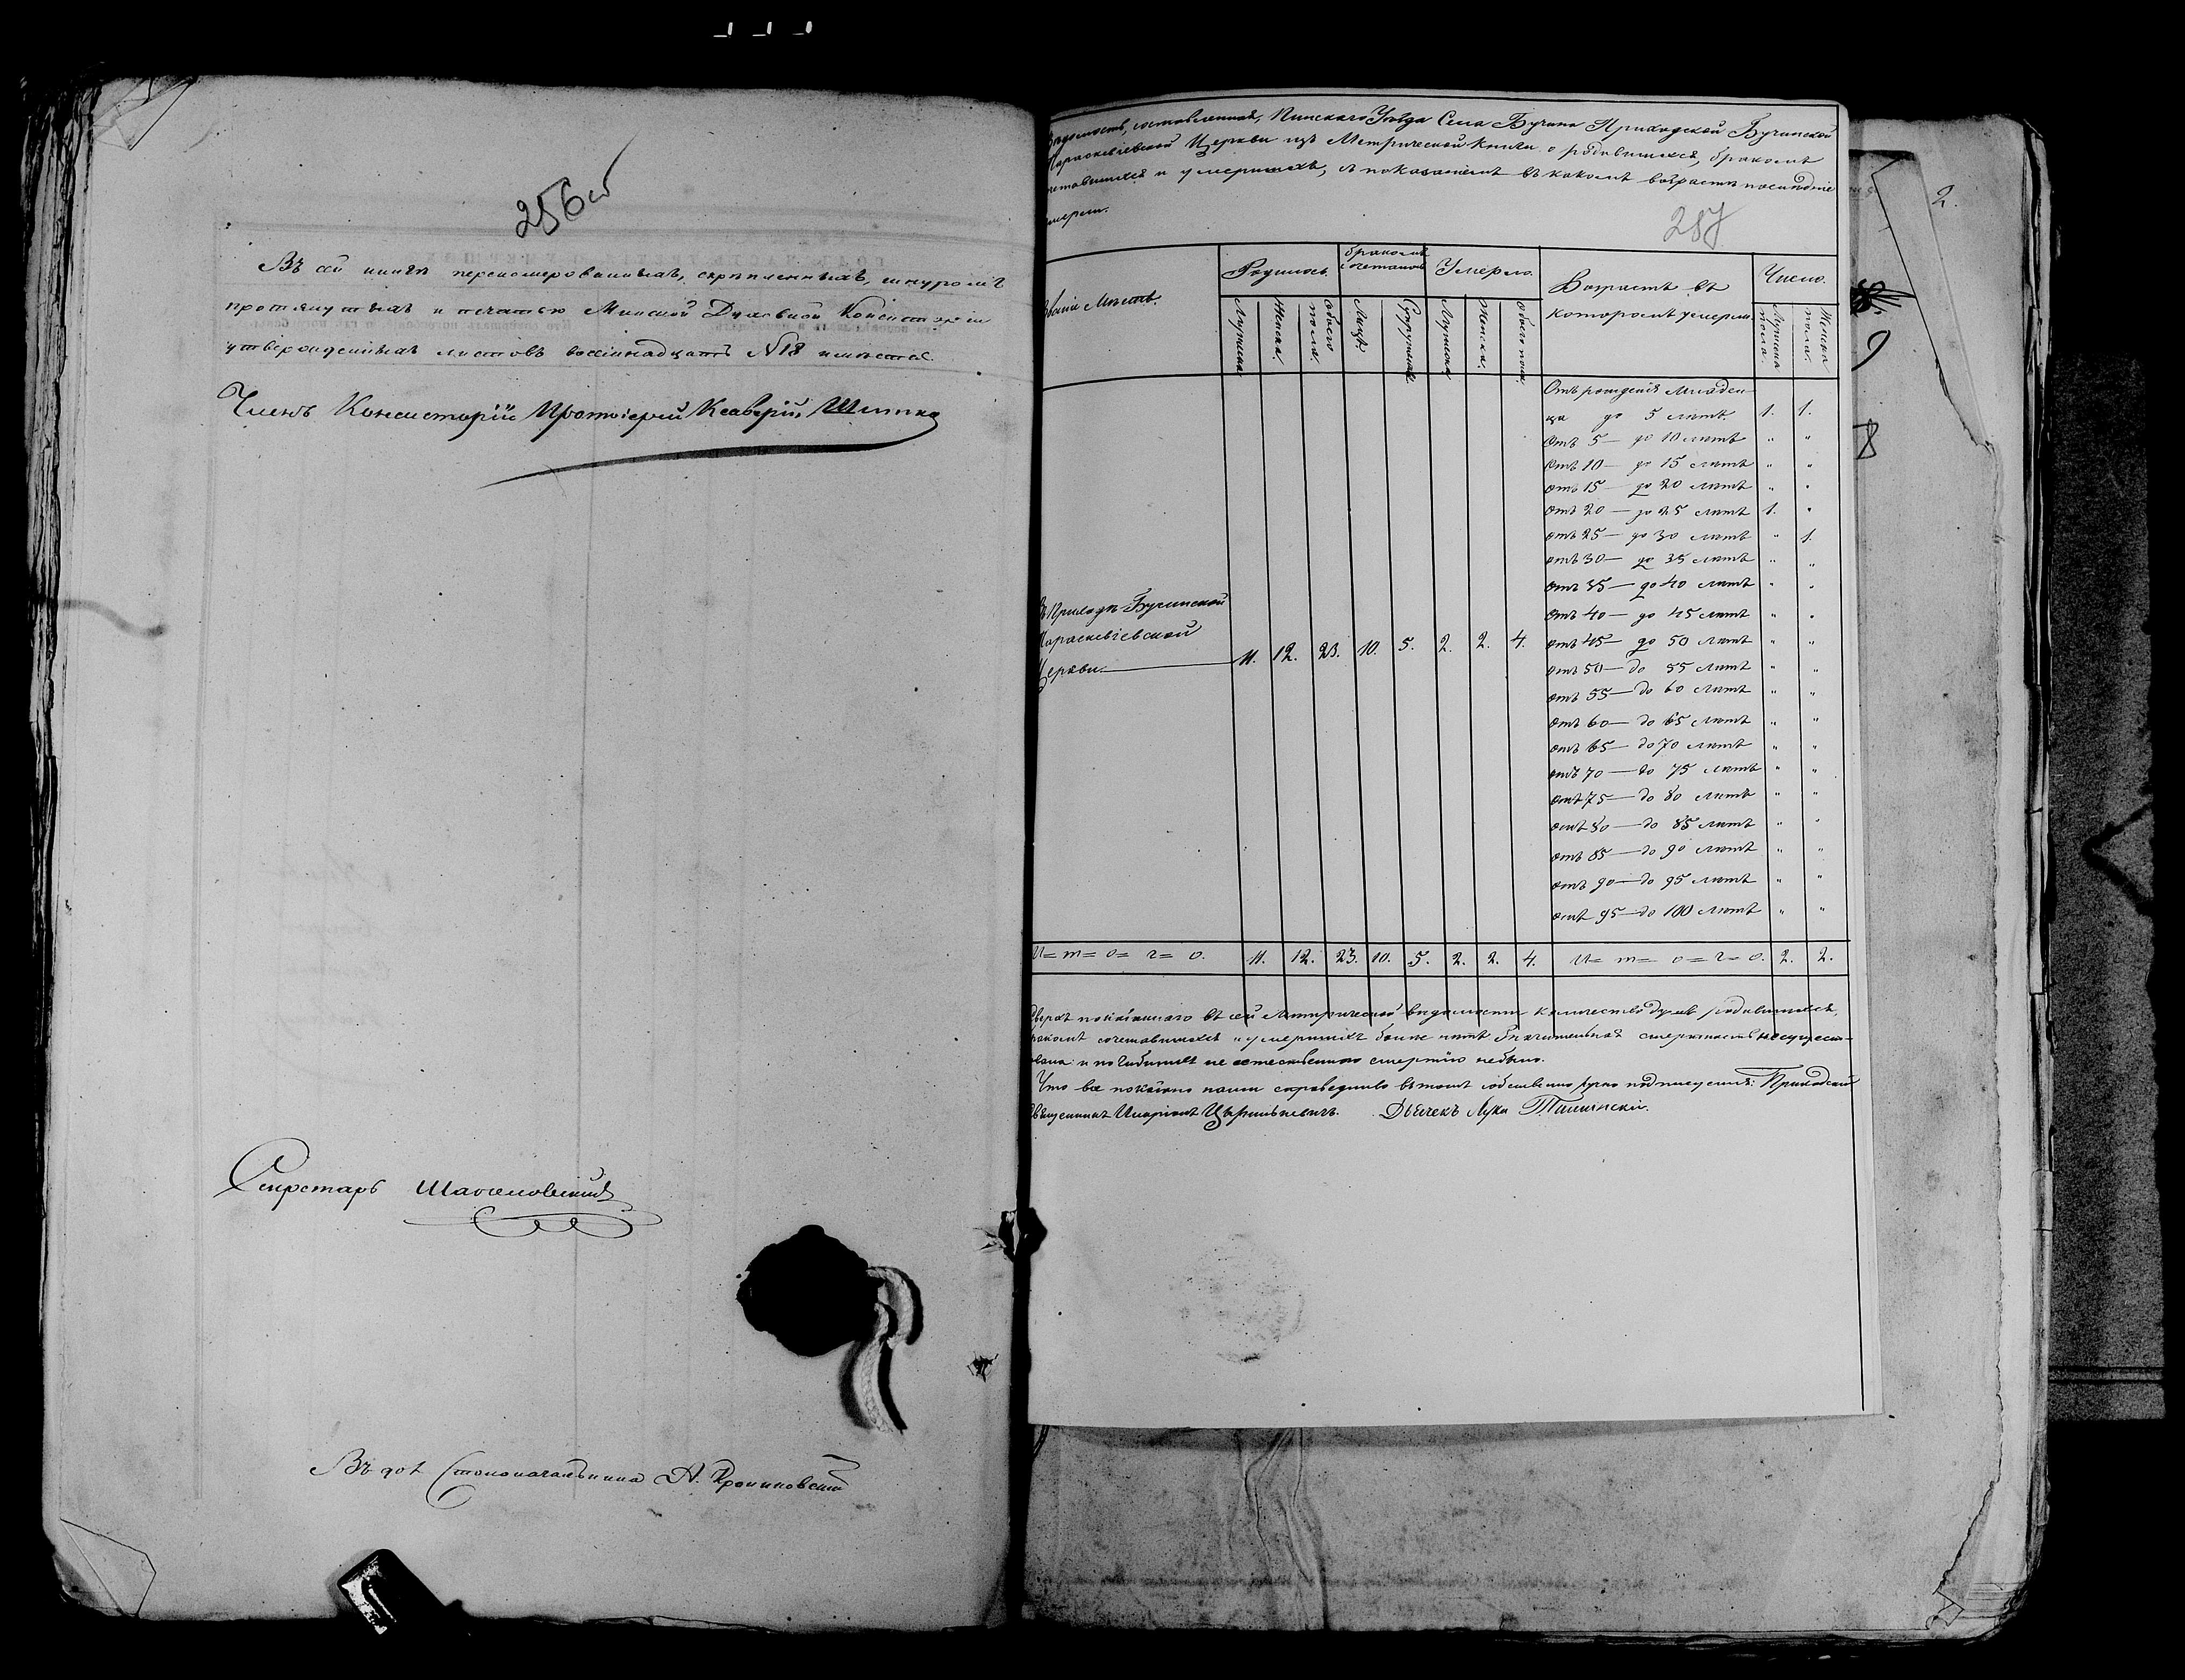 256 об
Въ сей книгѣ перенумерованныхъ, скрѣпленныхъ, шнуромъ
протянутыхъ и печатью Минской Духовной Консисторіи
утвержденныхъ листовъ восемнадцать №18 имѣется.
Членъ Консисторіи Протоіерей Ксаверій
Секретарь
Въ дол. Столоначальника А.
Вѣдомость, составленная, Пинскаго Уѣзда Села Бучина Приходской Бучинской
Параскевіевской Церкви изъ Метрической книги о родившихся, бракомъ
сочетавшихся и умершихъ, съ показаніемъ въ какомъ возрастѣ послѣдніе
умерли.
287
2.
Званіе Мѣстъ.
Родилось.
бракомъ сочеталось
Умерло.
Возрастъ въ
которомъ умерли.
Число.
Мужска
Женска.
Обоего пола.
Лицъ
Супружествъ
Мужска
Женска.
Обоего пола
Мужска пола.
Женска пола.
Отъ рожденія Младен-
ца до 5 лѣтъ. 1. 1.
Отъ 5 — до 10 лѣтъ " "
Отъ 10 — до 15 лѣтъ " "
Отъ 15 — до 20 лѣтъ " "
Отъ 20 — до 25 лѣтъ 1. "
Отъ 25 — до 30 лѣтъ " 1.
Отъ 30 — до 35 лѣтъ " "
Отъ 35 — до 40 лѣтъ " "
Отъ 40 — до 45 лѣтъ " "
Отъ 45 — до 50 лѣтъ " "
Отъ 50 — до 55 лѣтъ " "
Отъ 55 — до 60 лѣтъ " "
Отъ 60 — до 65 лѣтъ " "
Отъ 65 — до 70 лѣтъ " "
Отъ 70 — до 75 лѣтъ " "
Отъ 75 — до 80 лѣтъ " "
Отъ 80 — до 85 лѣтъ " "
Отъ 85 — до 90 лѣтъ " "
Отъ 90 — до 95 лѣтъ " "
Отъ 95 — до 100 лѣтъ " "
Въ Приходѣ Бучинской
Параскевіевской
Церкви. — 11. 12. 23. 10. 5. 2. 2. 4.
И = т = о = г = о. 11. 12. 23. 10. 5. 2. 2. 4. И = т = о = г = о. 2. 2.
Сверхъ показаннаго въ сей Метрической вѣдомости количества душъ родившихся,
бракомъ сочетавшихся и умершихъ болѣе нѣтъ. Значительная смертность несущество-
вала: и погибшихъ не естественною смертію небыло.
Что все показано нами справедливо въ томъ собственно ручно подписуемся: Приходскій
Священникъ Иларіонъ Дьячекъ Лука